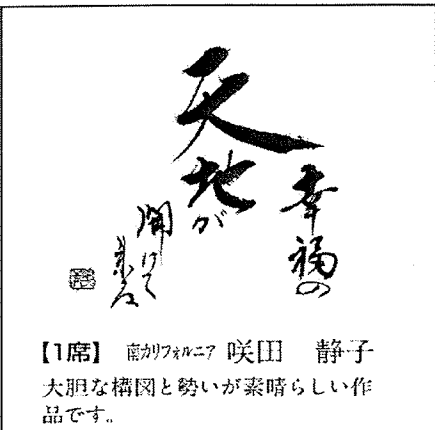 幸福の
天地が
開けて
来る
【1席】 南カリフォルニア 咲田 静子
大胆な構図と勢いが素晴らしい作
品です。